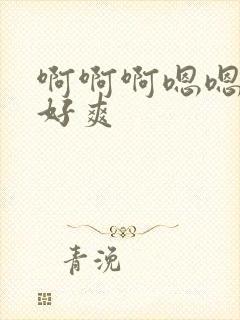 啊啊啊嗯嗯
好爽
青浼